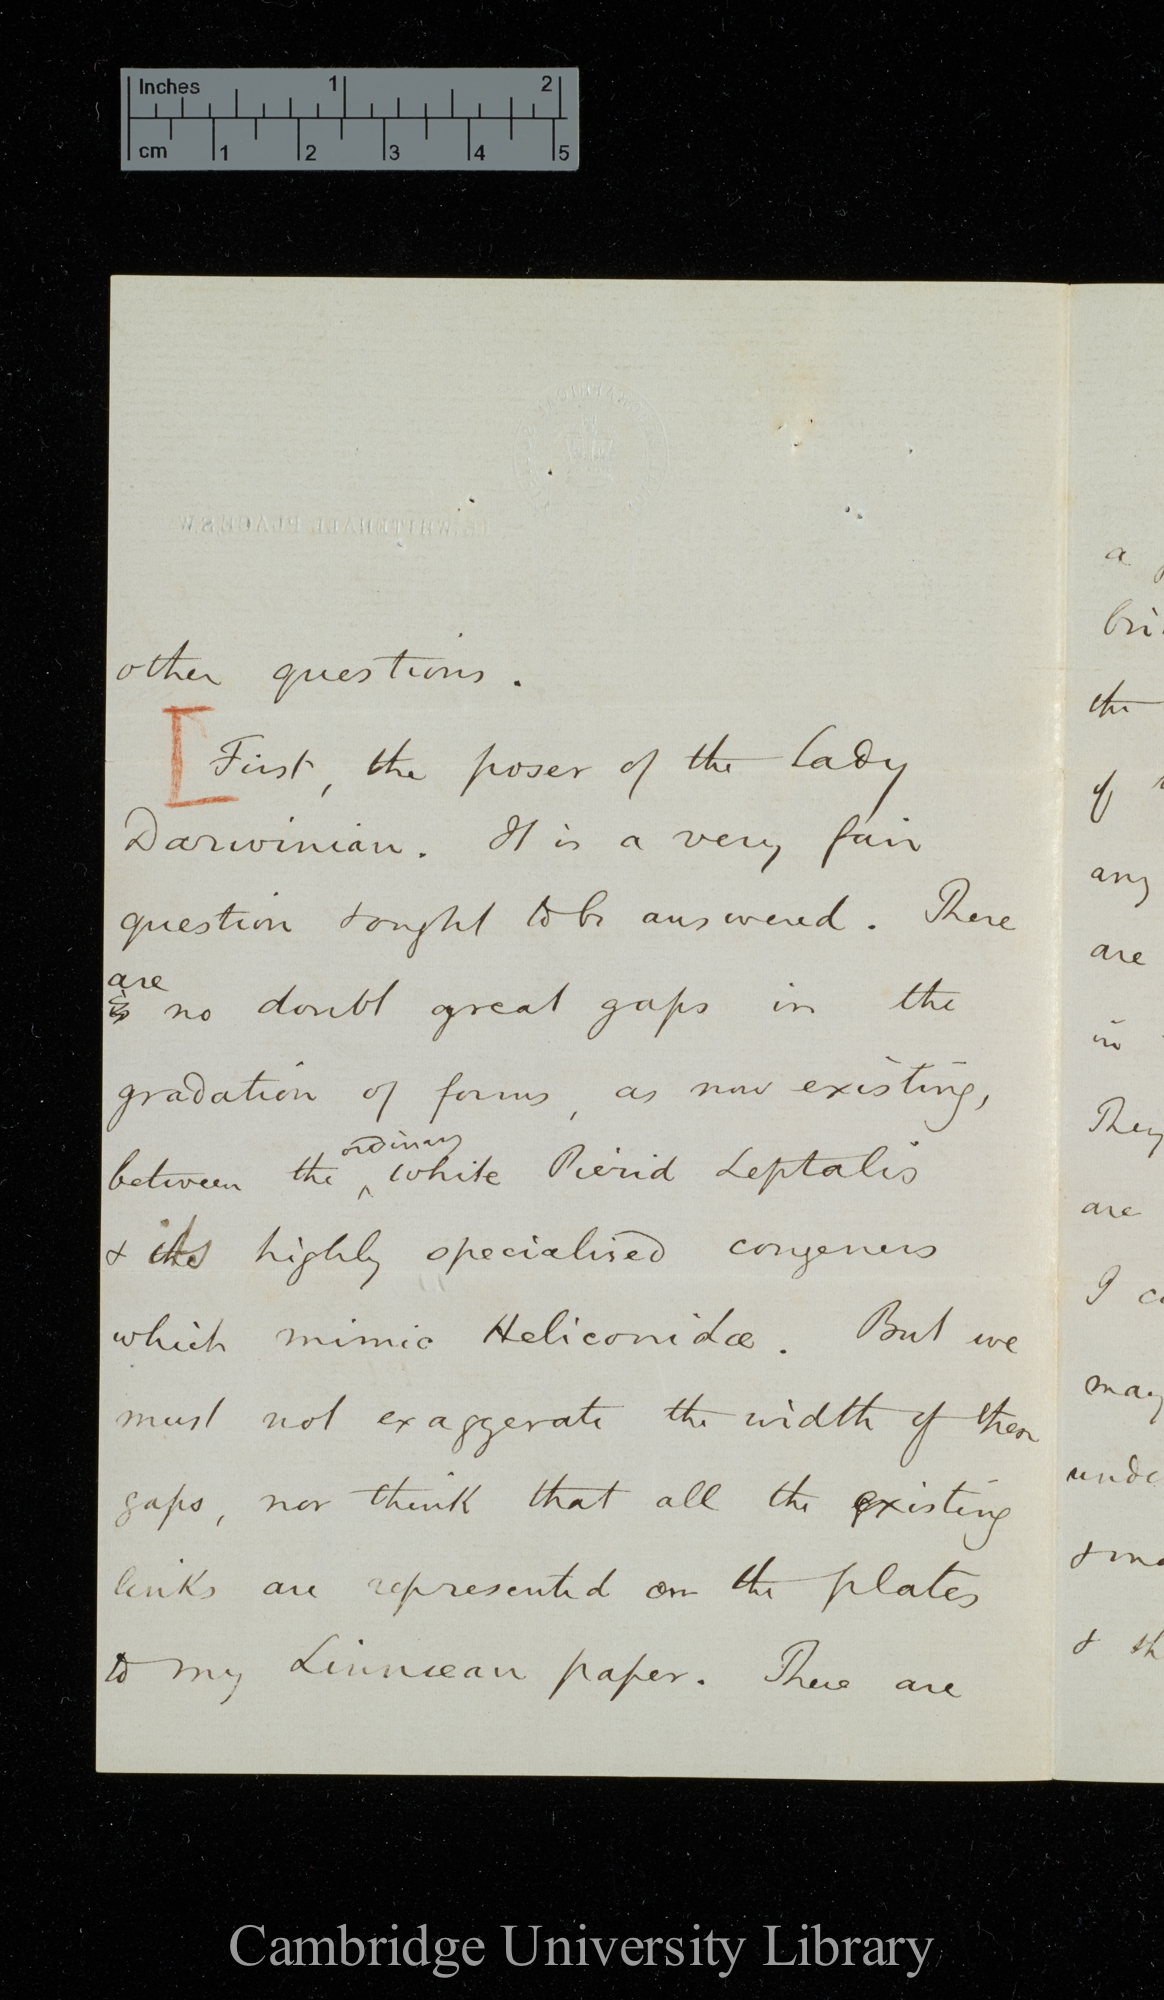 Inches 1 2
cm 1 2 3 4 5
15, WHITEHALL PLACE, S.W.
other questions.
First, the poser of the Lady
Darwinian. It is a very fair
question & ought to be answered. There
are
is no doubt great gaps in the
gradation of forms, as now existing,
ordinary
between the ^ white Pierid Leptalis
& its highly specialised congeners
which mimic Heliconidæ. But we
must not exaggerate the width of these
gaps, nor think that all the existing
links are represented on the plates
to my Linnæan paper. There are
a
bri
the
of
any
are
in
They
are
I c
may
unde
& ma
& th
Cambridge University Library